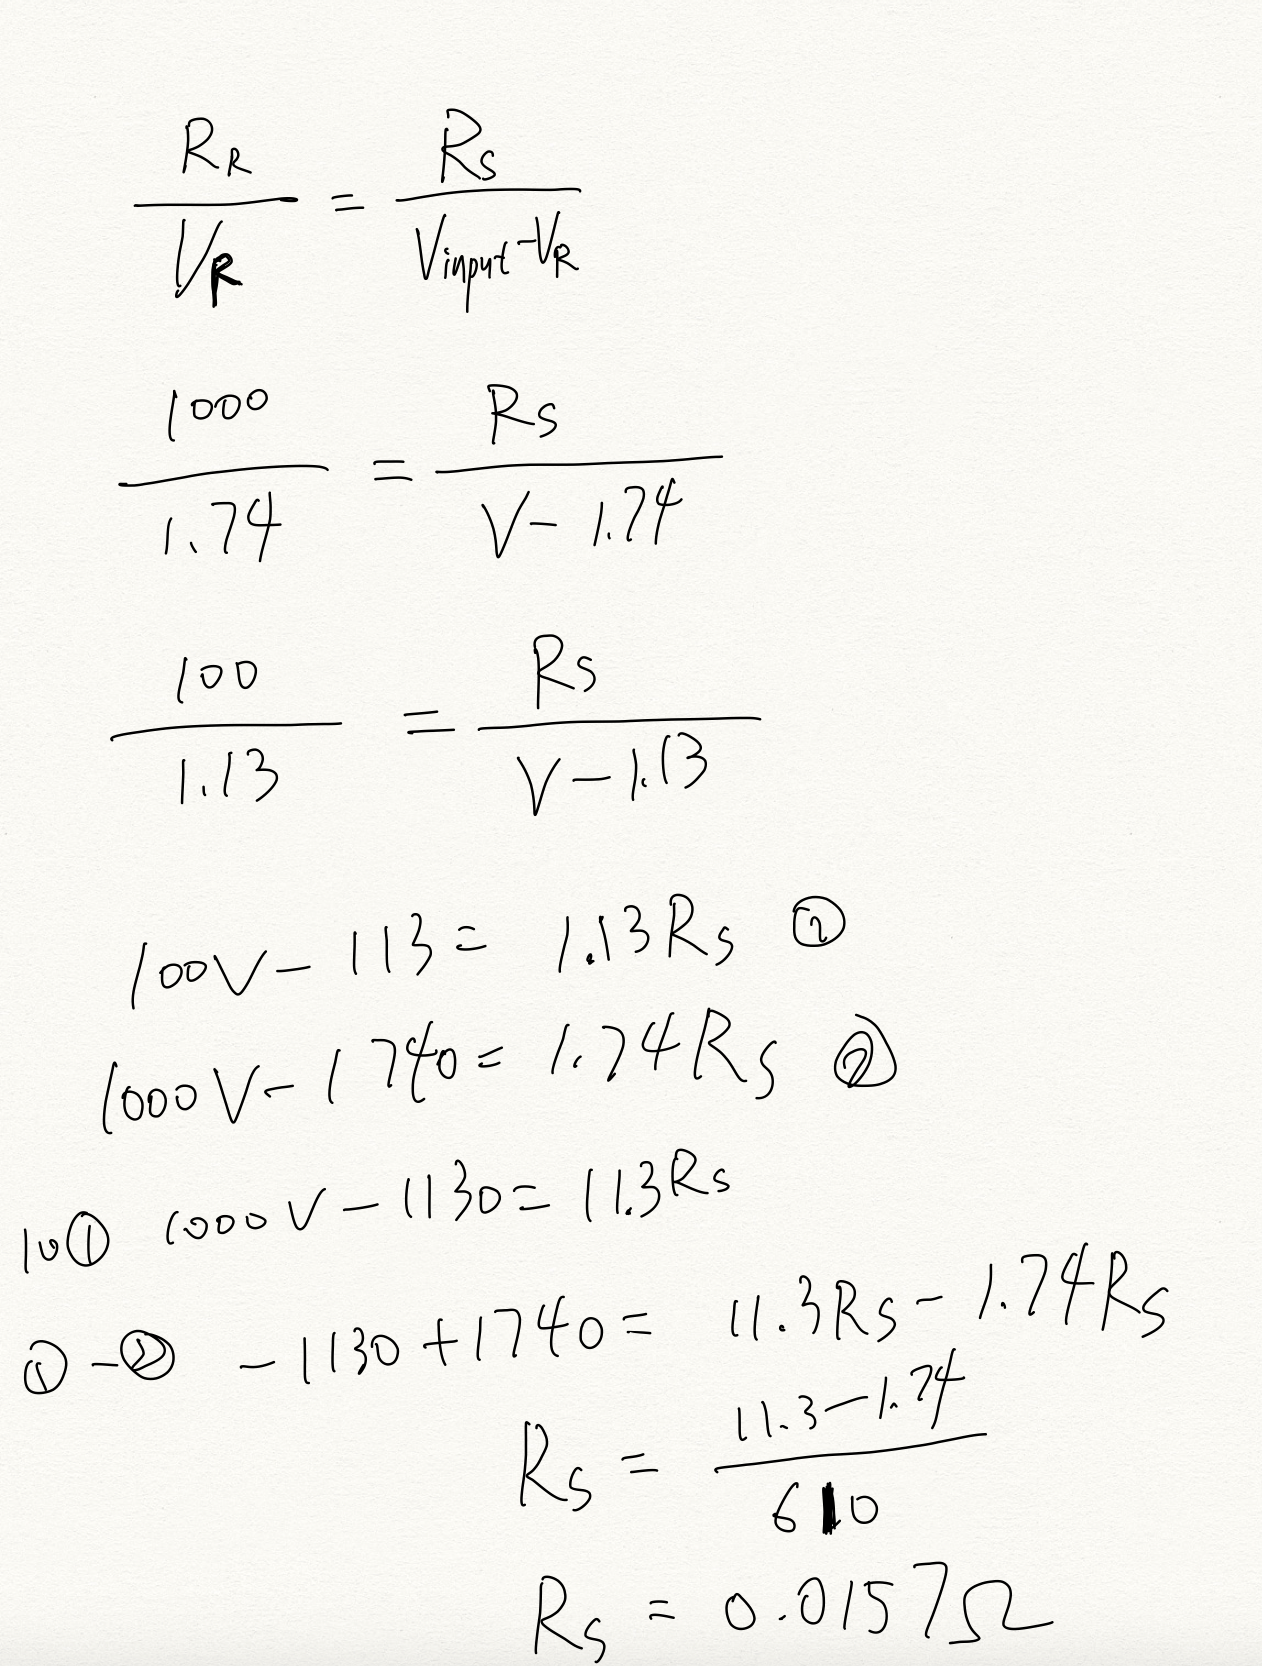 R_R / V_R = R_s / (V_input - V_R)
1000 / 1.74 = R_s / (V - 1.74)
100 / 1.13 = R_s / (V - 1.13)
100V - 113 = 1.13R_s ①
1000V - 1740 = 1.74R_s ②
10① 1000V - 1130 = 11.3R_s
① - ② -1130 + 1740 = 11.3R_s - 1.74R_s
R_s = (11.3 - 1.74) / 610
R_s = 0.0157Ω